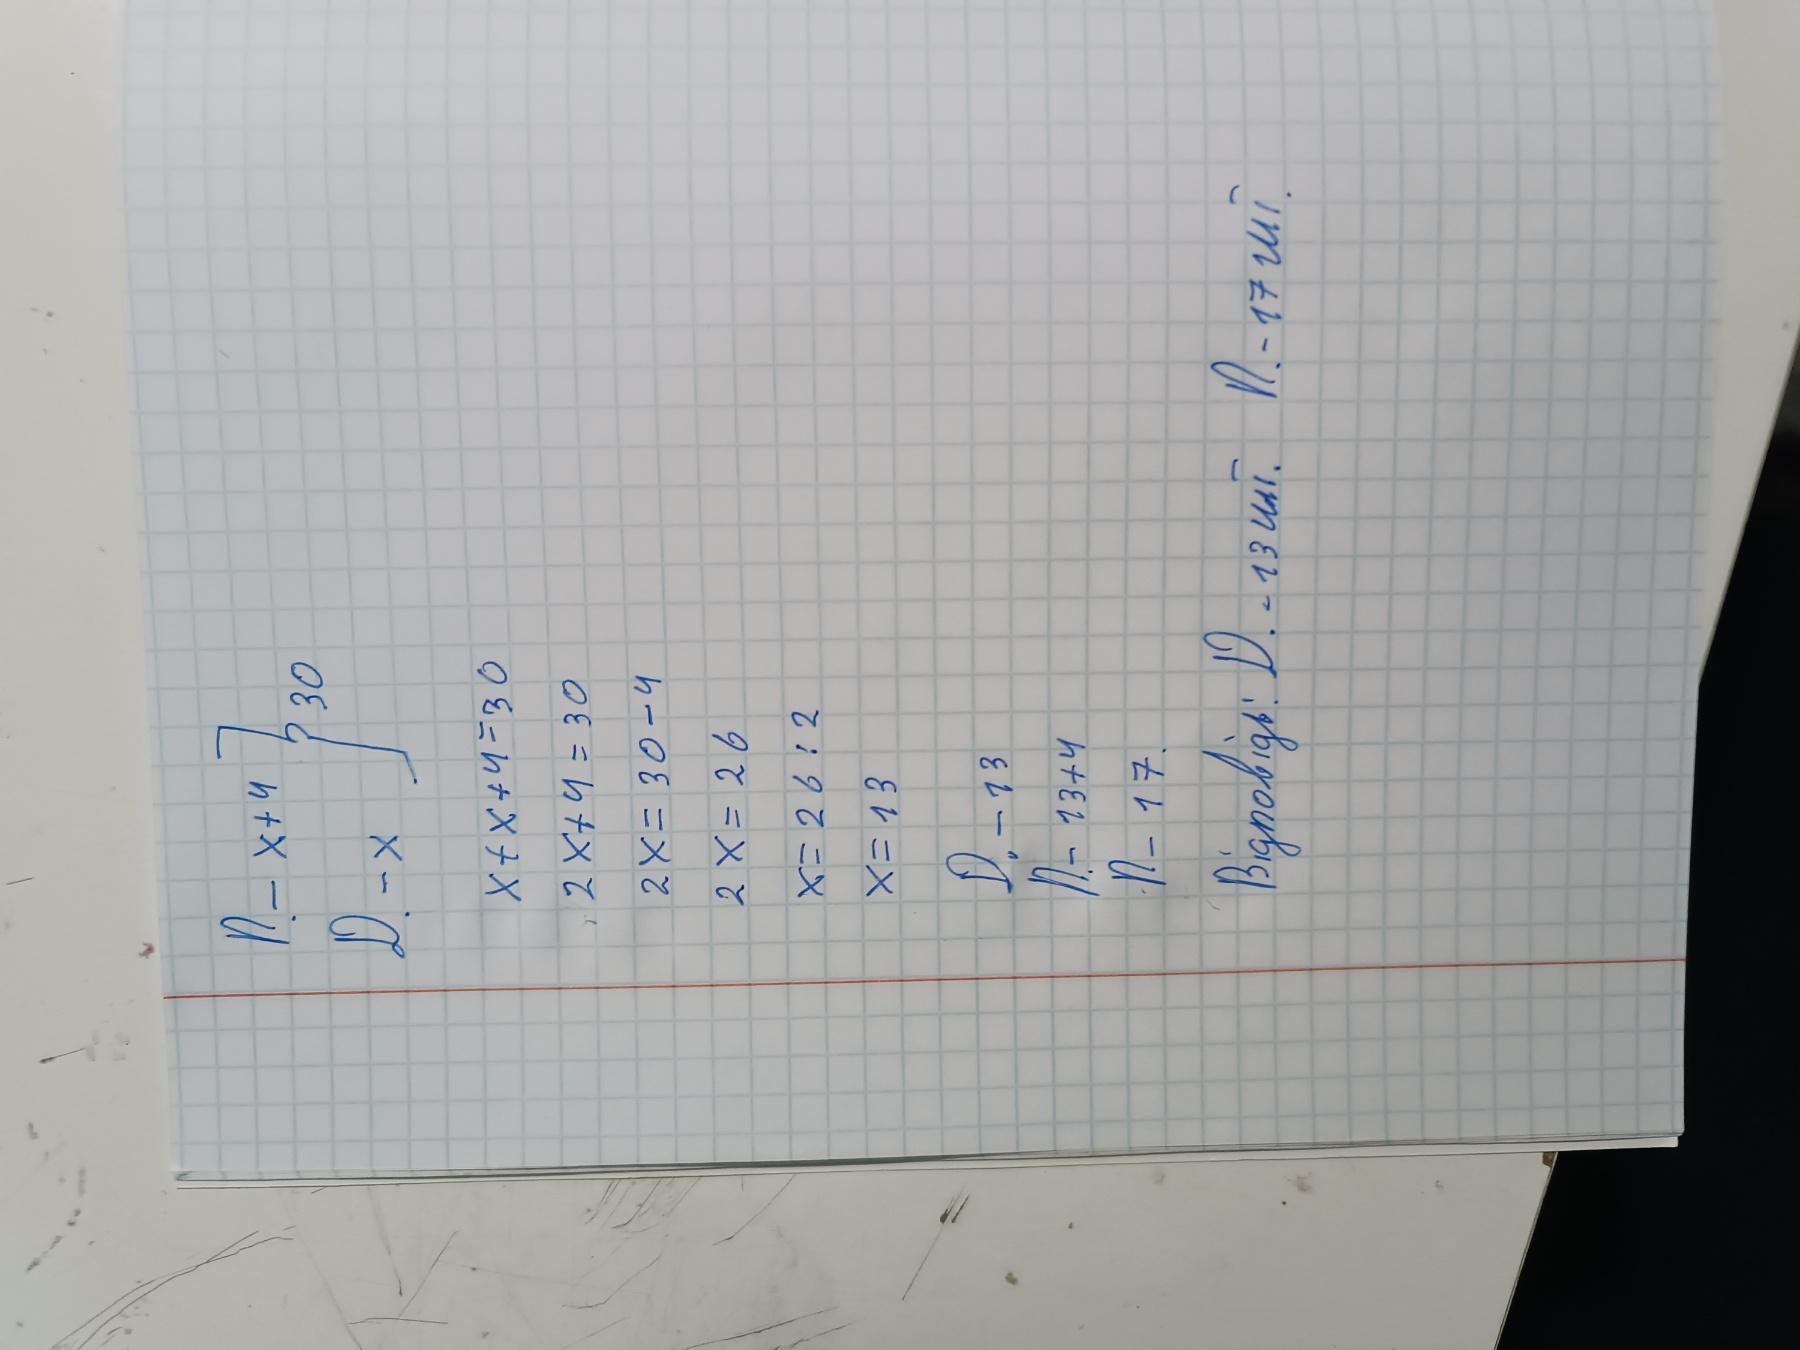 П. - x+4
} 30
Д. - x
x+x+4=30
2x+4=30
2x=30-4
2x=26
x=26:2
x=13
Д. - 13
П. - 13+4
П - 17.
Відповідь: Д. - 13 шт. П. - 17 шт.